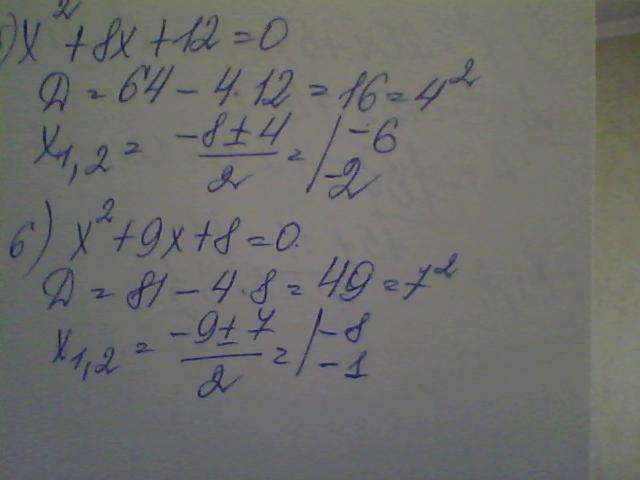 ) x² + 8x + 12 = 0
Д = 64 - 4·12 = 16 = 4²
x₁,₂ = (-8 ± 4)/2 = | -6
-2
б) x² + 9x + 8 = 0.
Д = 81 - 4·8 = 49 = 7²
x₁,₂ = (-9 ± 7)/2 = | -8
-1